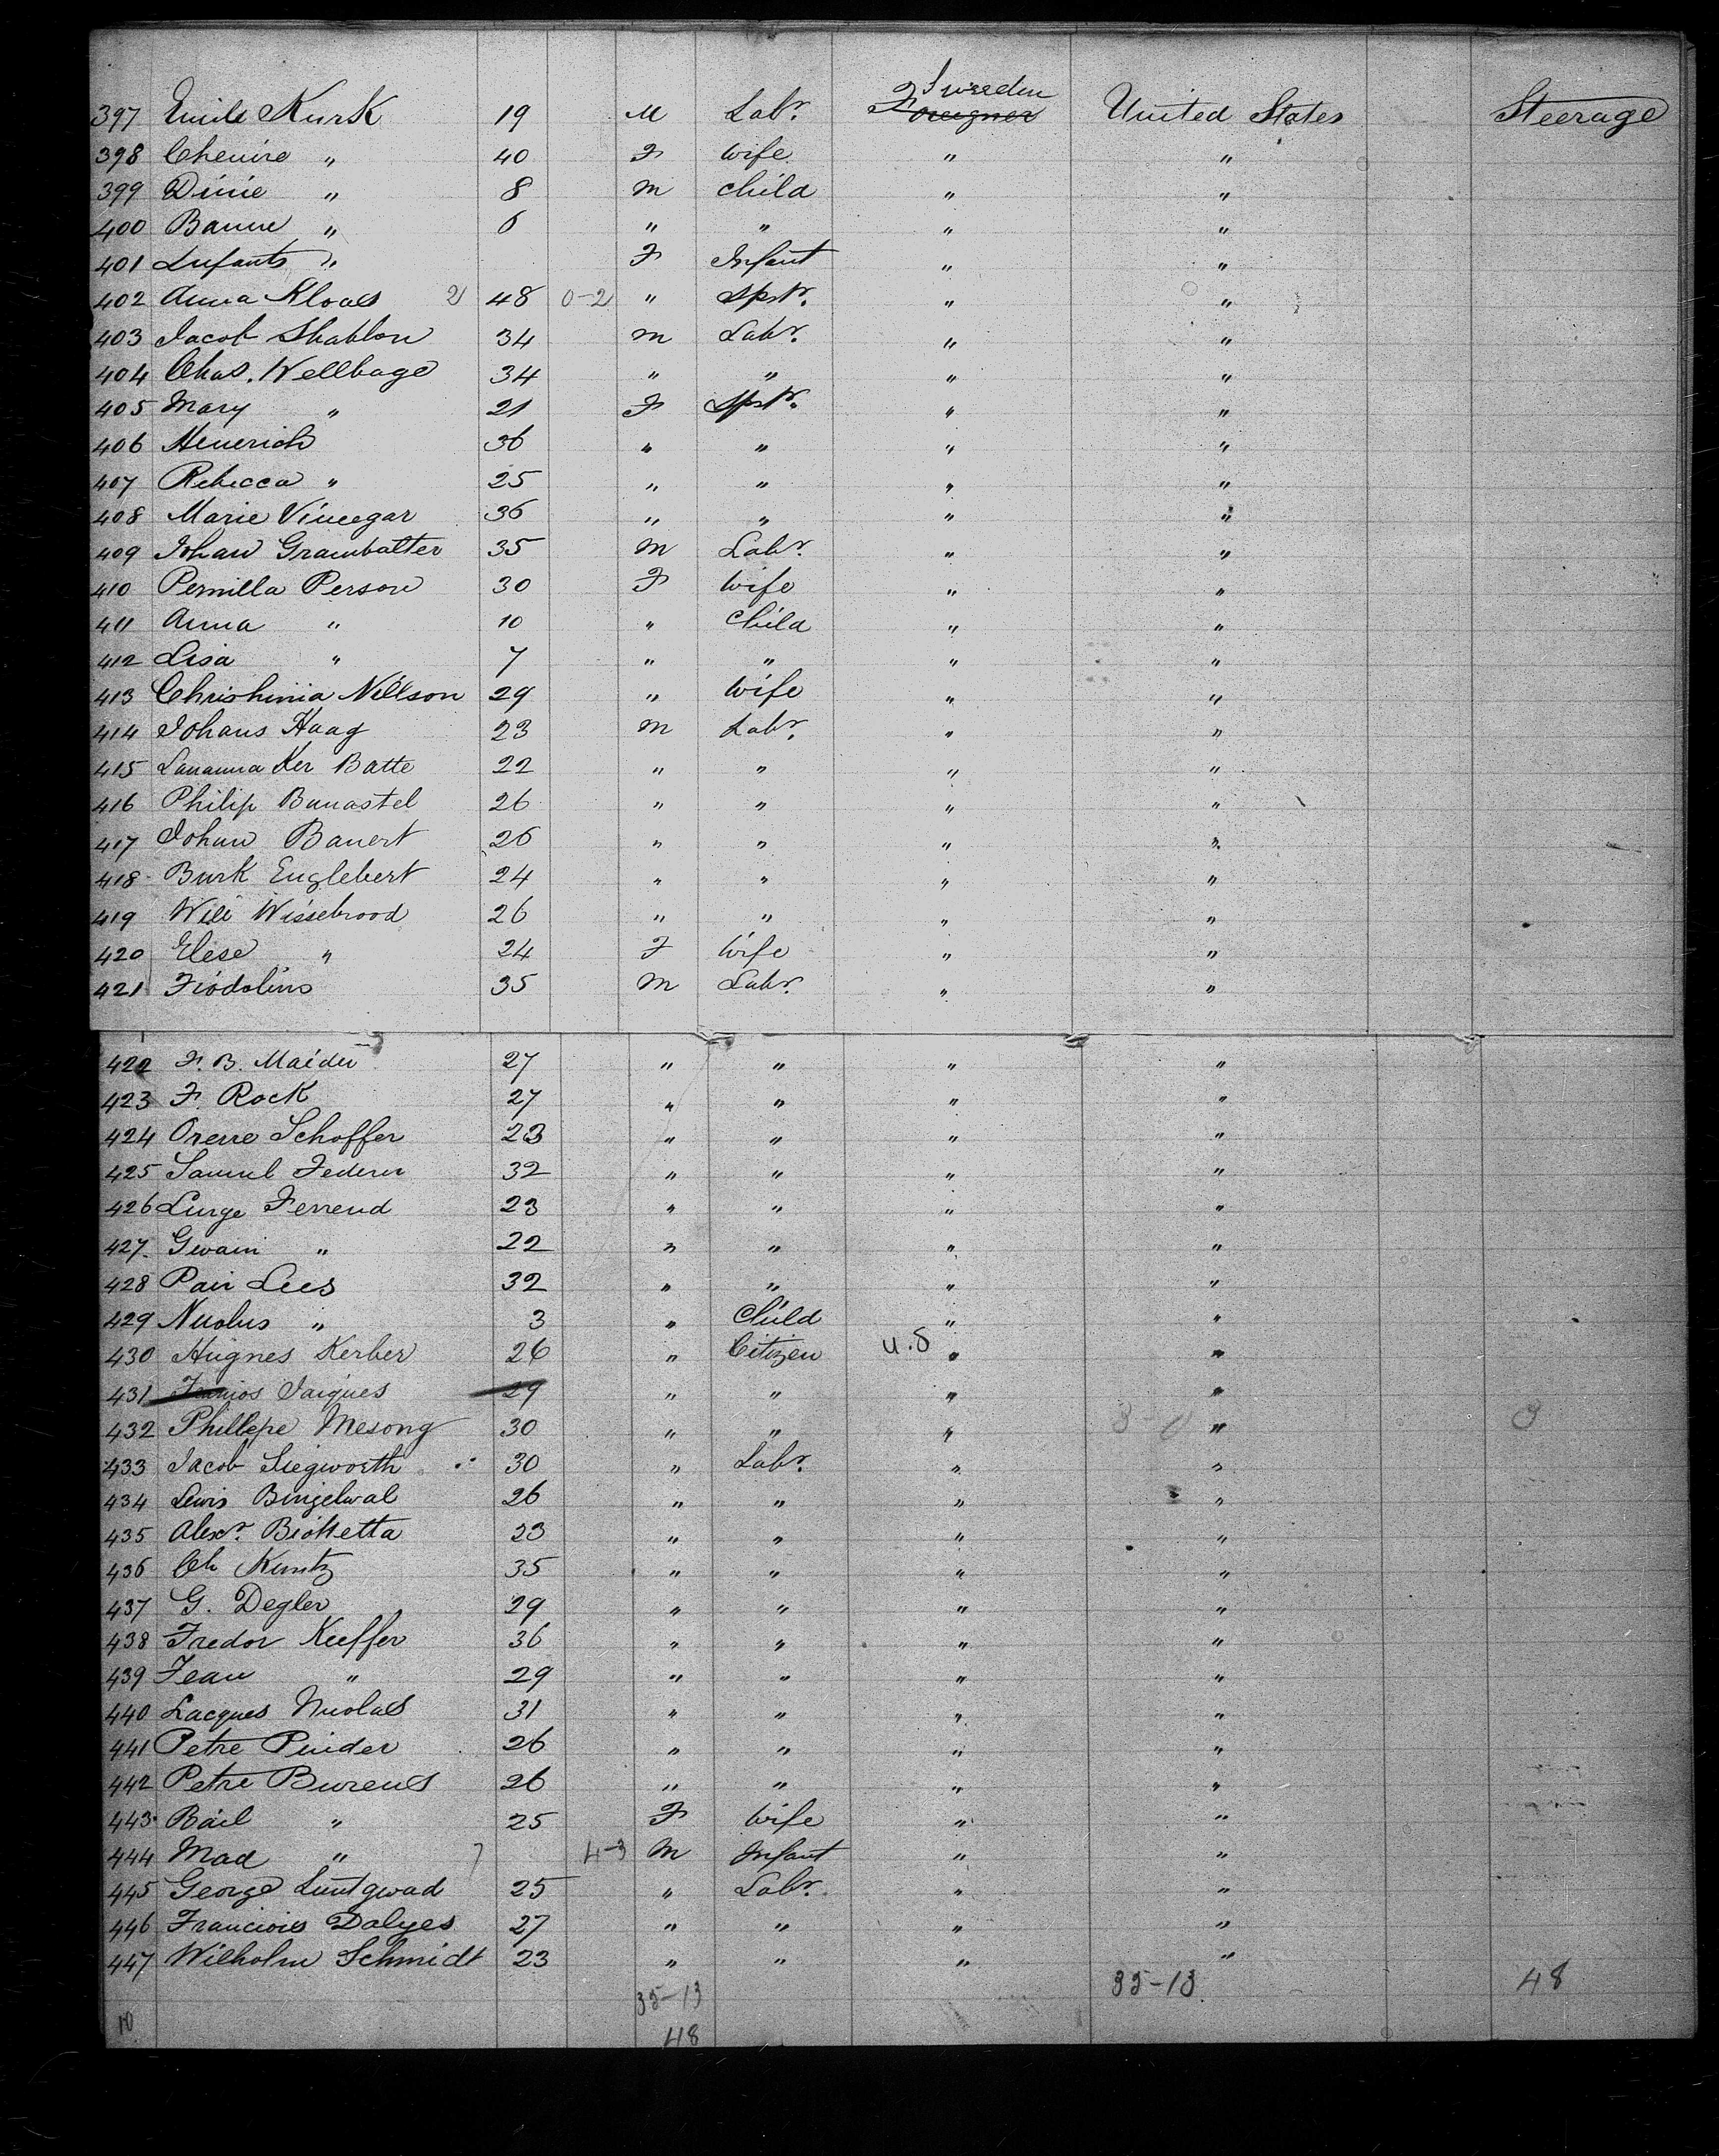 397 Emile Kurk 19 M Labr. Sweden Foreigner United States Steerage
398 Chenire " 40 F Wife " "
399 Dinie " 8 M Child " "
400 Banne " 6 " " " "
401 Infants " F Infant " "
402 Anna Kloaes 2 48 0-2 " Spstr. " "
403 Jacob Shablon 34 M Labr. " "
404 Chas. Wellbage 34 " " " "
405 Mary " 21 F Spstr. " "
406 Henerich 36 " " " "
407 Rebecca " 25 " " " "
408 Marie Vinegar 36 " " " "
409 Johan Grambatter 35 M Labr. " "
410 Pernilla Person 30 F Wife " "
411 Anna " 10 " Child " "
412 Lisa " 7 " " " "
413 Chrishinia Nillson 29 " Wife " "
414 Johans Haag 23 M Labr. " "
415 Lananna Ker Batte 22 " " " "
416 Philip Banastel 26 " " " "
417 Johan Banert 26 " " " "
418 Burk Englebert 24 " " " "
419 Will Wissebrood 26 " " " "
420 Elese " 24 F Wife " "
421 Fiodolins 35 M Labr. " "
422 F. B. Maider 27 " " " "
423 F. Rock 27 " " " "
424 Orerre Schoffer 23 " " " "
425 Samuel Federer 32 " " " "
426 Lurge Ferrend 23 " " " "
427. Gwain " 22 " " " "
428 Pair Lees 32 " " " "
429 Nuolus " 3 " Child " "
430 Hugnes Kerber 26 " Citizen U.S " "
431 Jaiques 29 " " " "
432 Phillepe Mesong 30 " " " "
433 Jacob Siegworth 30 " Labr. " "
434 Lewis Bingelwal 26 " " " "
435 Alexr. Biottetta 23 " " " "
436 Ch Kuntz 35 " " " "
437 G. Degler 29 " " " "
438 Fredor Keeffer 36 " " " "
439 Jean " 29 " " " "
440 Lacques Nuolas 31 " " " "
441 Petre Pinder 26 " " " "
442 Petre Burens 26 " " " "
443 Bail " 25 F Wife " "
444 Mad " 7 4-3 M Infant " "
445 George Luntgwad 25 " Labr. " "
446 Franciois Dalyes 27 " " " "
447 Wilholm Schmidt 23 " " " "
35-13 35-13. 48
10 48